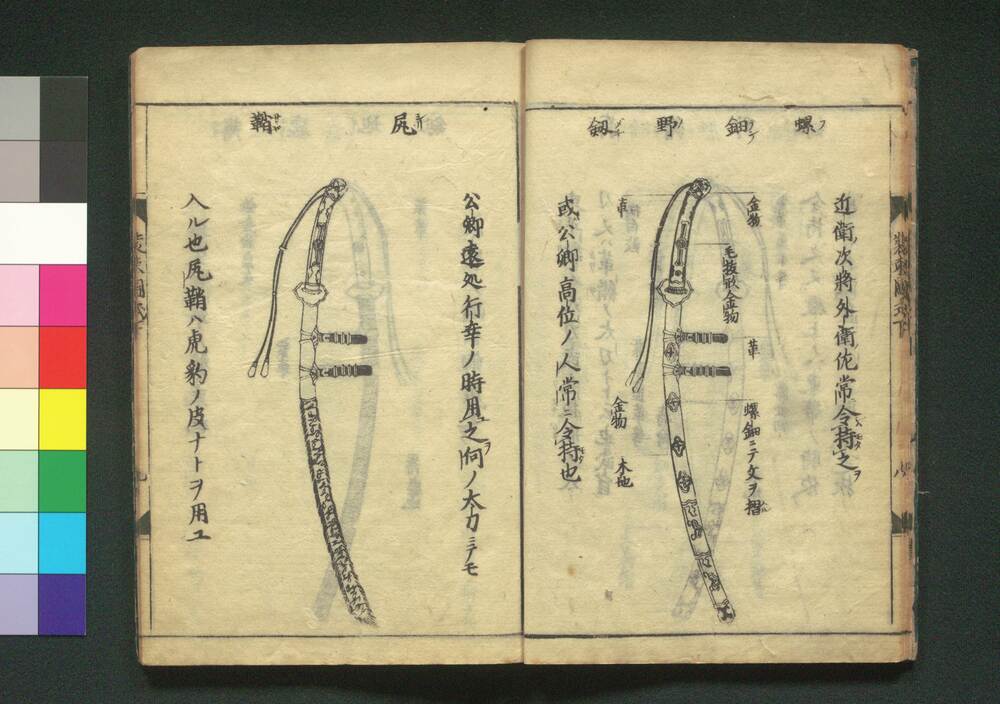 螺鈿野釼
近衛次將外衛佐常令持之
金物
毛抜形金物
革
螺鈿ニテ文ヲ摺
革
金物
木地
或ハ公卿高位ノ人常ニ令持也
尻鞘
公卿遠処行幸ノ時用之何ノ太刀ニテモ
入ル也尻鞘ハ虎豹ノ皮ナトヲ用ユ